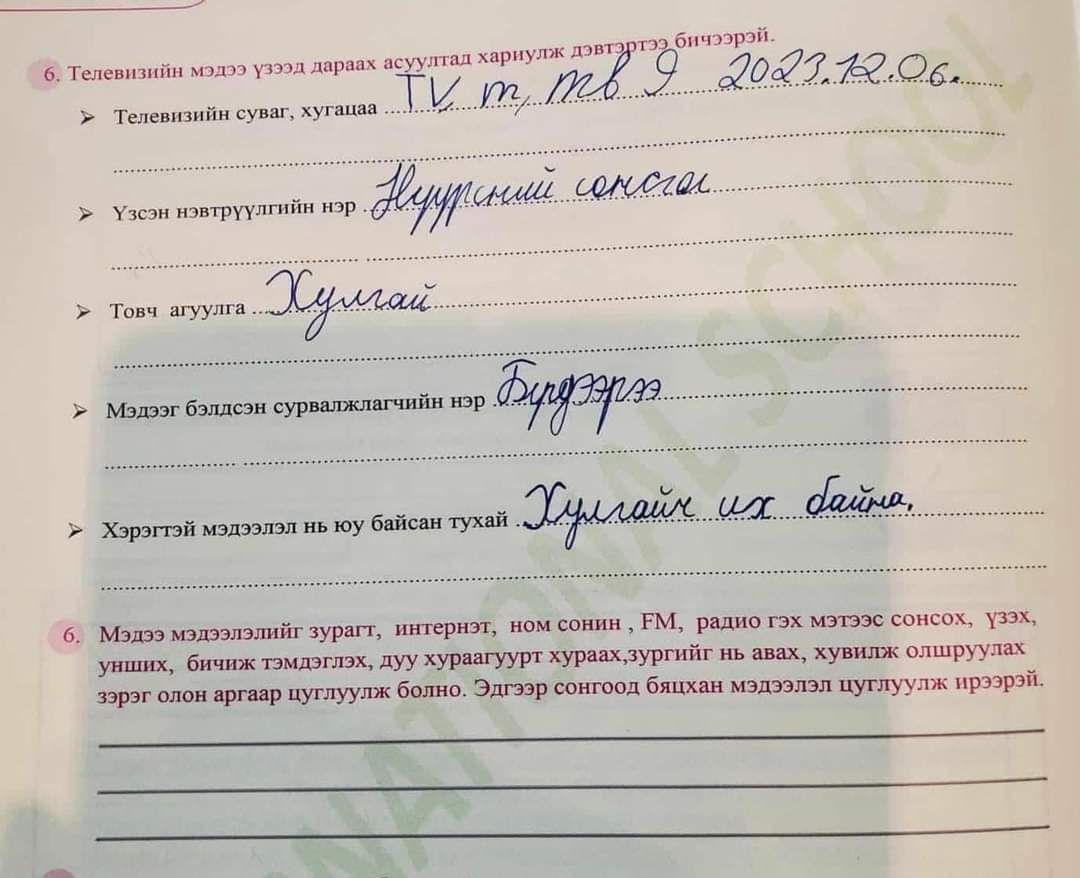 6. Телевизийн мэдээ үзээд дараах асуултад хариулж дэвтэртээ бичээрэй.
➢ Телевизийн суваг, хугацаа TV, т, тв 9 2023.12.06.
➢ Үзсэн нэвтрүүлгийн нэр Нүүрсний сонсгол
➢ Товч агуулга Хулгай
➢ Мэдээг бэлдсэн сурвалжлагчийн нэр Бүрдээрээ
➢ Хэрэгтэй мэдээлэл нь юу байсан тухай Хулгайч их байна.
6. Мэдээ мэдээлэлийг зурагт, интернэт, ном сонин , FM, радио гэх мэтээс сонсох, үзэх,
унших, бичиж тэмдэглэх, дуу хураагуурт хураах,зургийг нь авах, хувилж олшруулах
зэрэг олон аргаар цуглуулж болно. Эдгээр сонгоод бяцхан мэдээлэл цуглуулж ирээрэй.
NATIONAL SCHOOL